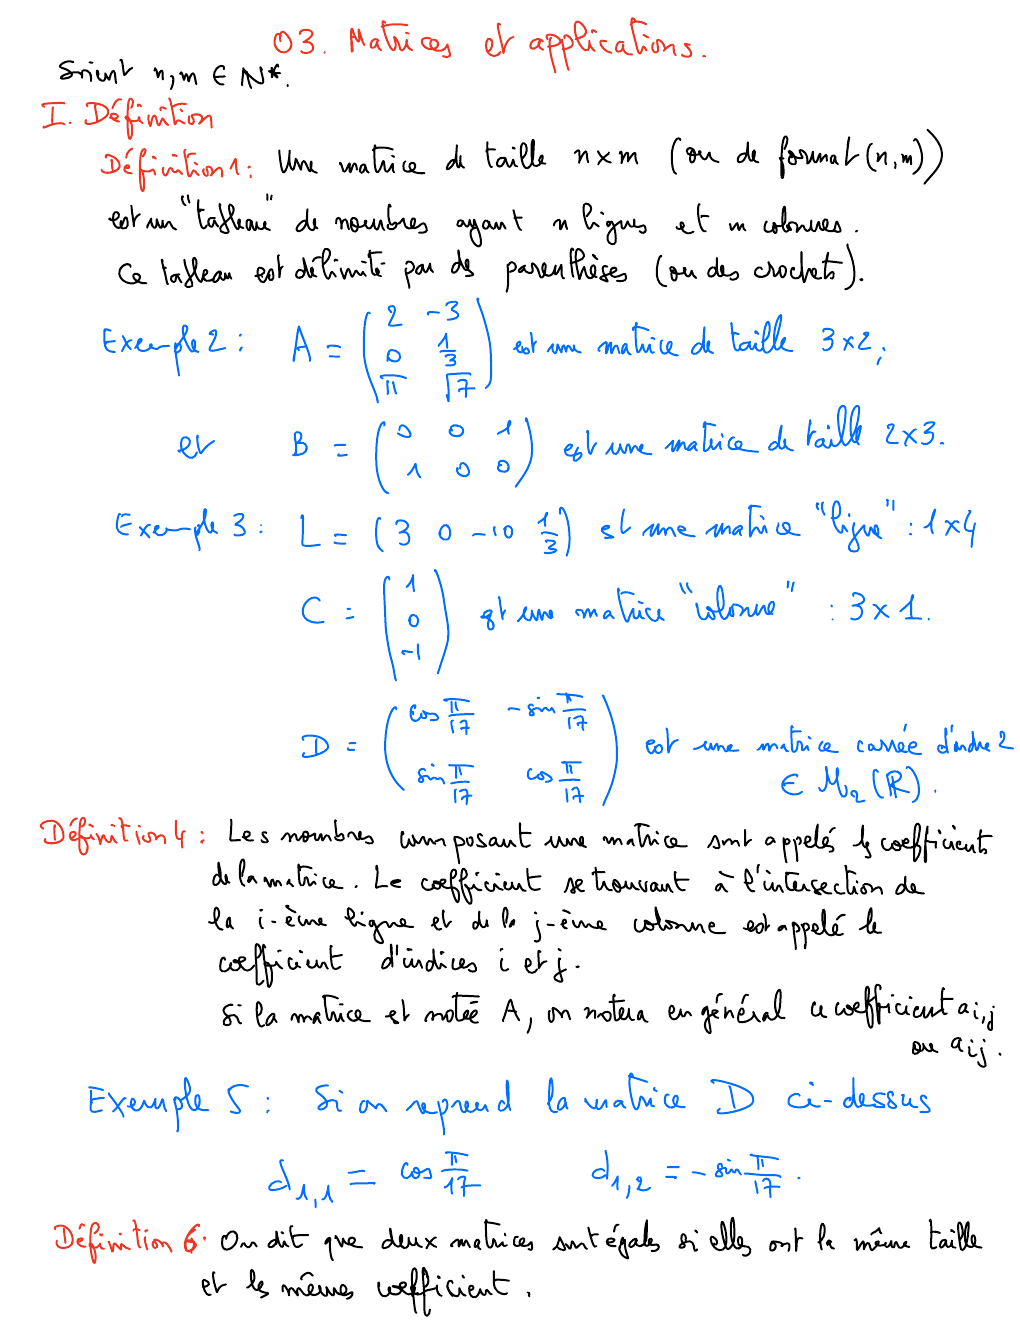 03. Matrices et applications.
Soient n,m ∈ N*.
I. Définition
Définition 1 : Une matrice de taille n×m (ou de format (n,m))
est un "tableau" de nombres ayant n lignes et m colonnes.
Ce tableau est délimité par des parenthèses (ou des crochets).
Exemple 2 : A = ( 2 -3 ; 0 1/3 ; π √7 ) est une matrice de taille 3×2;
et B = ( 0 0 1 ; 1 0 0 ) est une matrice de taille 2×3.
Exemple 3 : L = (3 0 -10 1/3) est une matrice "ligne" : 1×4
C = ( 1 ; 0 ; -1 ) est une matrice "colonne" : 3×1.
D = ( cos π/17 -sin π/17 ; sin π/17 cos π/17 ) est une matrice carrée d'ordre 2
∈ M₂(ℝ).
Définition 4 : Les nombres composant une matrice sont appelés les coefficients
de la matrice. Le coefficient se trouvant à l'intersection de
la i-ème ligne et de la j-ème colonne est appelé le
coefficient d'indices i et j.
Si la matrice est notée A, on notera en général ce coefficient a_{i,j}
ou a_{ij}.
Exemple 5 : Si on reprend la matrice D ci-dessus
d_{1,1} = cos π/17 d_{1,2} = -sin π/17.
Définition 6. On dit que deux matrices sont égales si elles ont la même taille
et les mêmes coefficient.